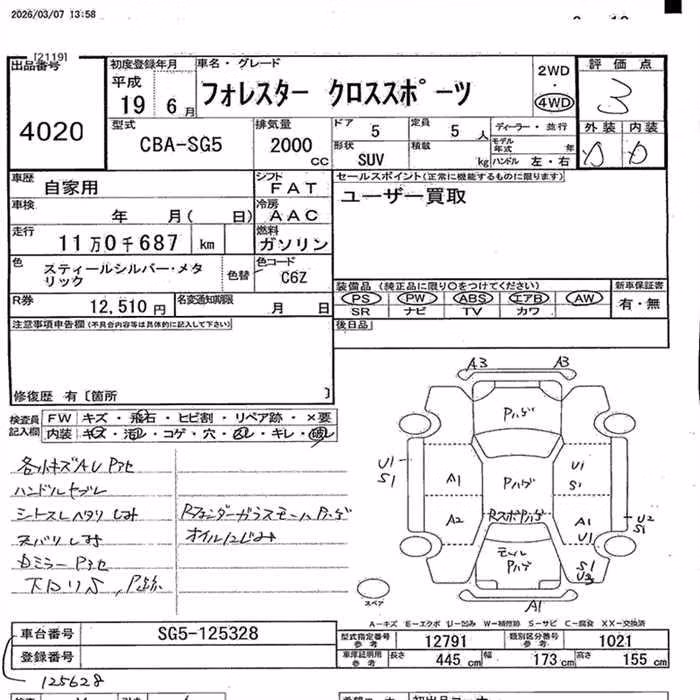 2026/03/07 13:58
[2119]
出品番号
4020
初度登録年月
平成
19 6月
車名・グレード
フォレスター クロススポーツ
2WD
・
4WD
評価点
3
外装 内装
D D
型式
CBA-SG5
排気量
2000
cc
ドア 5
定員 5 人
形状 SUV
積載 kg
ディーラー・並行
モデル年式 年
ハンドル 左・右
車歴 自家用
シフト FAT
車検 年 月( 日)
冷房 AAC
走行 11万0千687 km
燃料 ガソリン
色 スティールシルバー・メタリック
色替
色コード C6Z
R券 12,510円
名変通知期限 月 日
セールスポイント(正常に機能するものに限ります)
ユーザー買取
装備品(純正品に限り○をつけてください)
PS PW ABS エアB AW
SR ナビ TV カワ
新車保証書
有・無
後日品
注意事項申告欄(不具合内容等は具体的に記入して下さい)
修復歴 有〔箇所 〕
検査員記入欄
FW キズ・飛石・ヒビ割・リペア跡・×要
内装 キズ・汚レ・コゲ・穴・凹レ・キレ・破レ
各小キズAUPアセ
ハンドルセブレ
シートスレヘタリしみ
スバリしみ
Dミラー Pアセ
下回りS,P跡
RフェンダーガラスモールPハゲ
オイルにじみ
A3 A3
Pハゲ
U1
S1
A1
Pハゲ
U1
S1
A2
RスポPハゲ
A1
U1
U2
S1
モール
Pハゲ
S1
U3
A1
スペア
A-キズ E-エクボ U-凹み W-補修跡 S-サビ C-腐食 XX-交換済
車台番号 SG5-125328
登録番号
125628
型式指定番号
参考
12791
類別区分番号
参考
1021
車庫証明用
参考
長さ 445 cm
幅 173 cm
高さ 155 cm